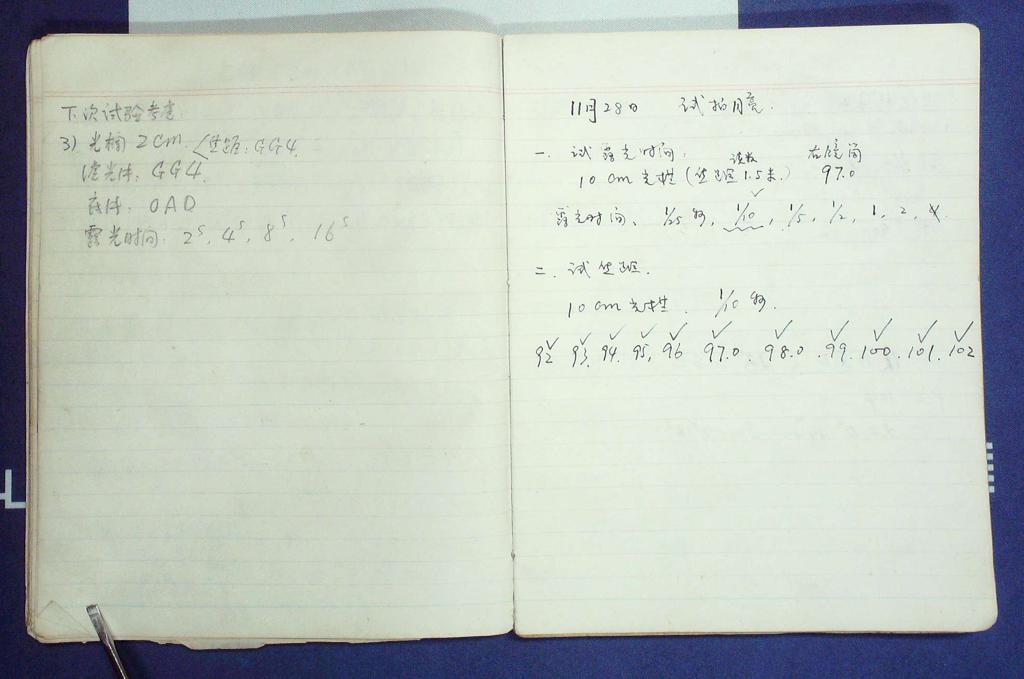 下次试验考虑:
3) 光栏 2cm. <焦距: GG4.
滤光片: GG4.
底片: OAD
露光时间: 2ˢ, 4ˢ, 8ˢ, 16ˢ
11月28日 试拍月亮.
一. 试露光时间: 读数 右镜筒
10 cm 光栏 (焦距 1.5米.) 97.0
露光时间、 1/25 秒, 1/10, 1/5, 1/2, 1, 2, 4.
二. 试焦距.
10 cm 光栏. 1/10 秒.
92 93, 94. 95, 96 97.0. 98.0. 99. 100. 101. 102